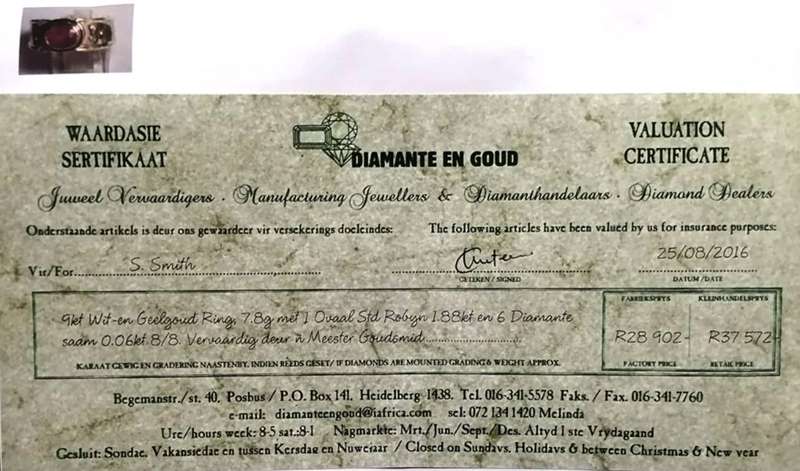 WAARDASIE SERTIFIKAAT
DIAMANTE EN GOUD
VALUATION CERTIFICATE
Juweel Vervaardigers . Manufacturing Jewellers & Diamanthandelaars . Diamond Dealers
Onderstaande artikels is deur ons gewaardeer vir versekerings doeleindes: The following articles have been valued by us for insurance purposes:
Vir/For S. Smith 25/08/2016
GETEKEN / SIGNED DATUM / DATE
FABRIEKSPRYS KLEINHANDELSPRYS
9kt Wit-en Geelgoud Ring, 7.8g met 1 Ovaal Std Robyn 1.88kt en 6 Diamante
saam 0.06kt 8/8. Vervaardig deur 'n Meester Goudsmid
R28 902- R37 572-
KARAAT GEWIG EN GRADERING NAASTENBY. INDIEN REEDS GESET/ IF DIAMONDS ARE MOUNTED GRADING & WEIGHT APPROX.
FACTORY PRICE RETAIL PRICE
Begemanstr./st. 40, Posbus / P.O. Box 141, Heidelberg 1438. Tel. 016-341-5578 Faks. / Fax. 016-341-7760
e-mail: diamanteengoud@iafrica.com sel: 072 134 1420 Melinda
Ure/hours week: 8-5 sat.:8-1 Nagmarkte: Mrt./Jun./Sept./Des. Altyd 1 ste Vrydagaand
Gesluit: Sondae, Vakansiedae en tussen Kersdag en Nuwejaar / Closed on Sundays, Holidays & between Christmas & New year